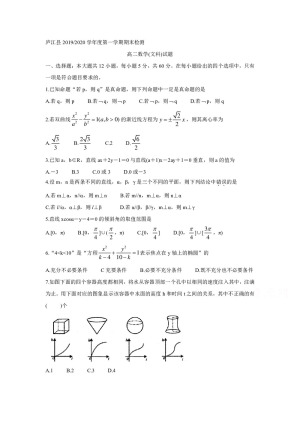 庐江县 2019/2020 学年度第一学期期末检测
高二数学(文科)试题
一、选择题，本大题共 12 小题，每小题 5 分，共 60 分，在每小题给出的四个选项中，只有
一项是符合题目要求的。
1.已知命题“若 p，则 q”是真命题，则下列命题中一定是真命题的是
A.若 q，则 p B.若¬q，则¬p C.若¬p，则¬q D.若¬p，则 q
2.若双曲线 x²/a² − y²/b² = 1(a,b>0) 的渐近线方程为 y = ±(√2/2)x，则其离心率为
A. √3/3 B. 2√3/3 C.2 D. √6/2
3.已知 a，b∈R，直线 ax＋2y－1＝0 与直线(a＋1)x－2ay＋1＝0 垂直，则 a 的值为
A.－3 B.3 C.0 或 3 D.0 或－3
4.设 m，n 是两条不同的直线，α，β，γ 是三个不同的平面，则下列结论中错误的是
A.若 m⊥α，n//α，则 m⊥n B.若 m//n，m⊥α，则 n⊥α
C.若 l//α，α⊥β，则 l⊥β D.若 α//β，β//γ，m⊥α，则 m⊥γ
5.直线 xcosα－y－4＝0 的倾斜角的取值范围是
A.[0，π) B.[0，π/4]∪[π/2，π) C.[0，π/4] D.[0，π/4]∪[3π/4，π)
6.“4<k<10”是“方程 x²/(k−4) + y²/(10−k) = 1 表示焦点在 y 轴上的椭圆”的
A.充分不必要条件 B.充要条件 C.必要不充分条件 D.既不充分也不必要条件
7.如图下面的四个容器高度都相同，将水从容器顶部一个孔中以相同的速度注入其中，注满
为止。用下面对应的图象显示该容器中水面的高度 h 和时间 t 之间的关系，其中不正确的有
( )个
A.1 B.2 C.3 D.4